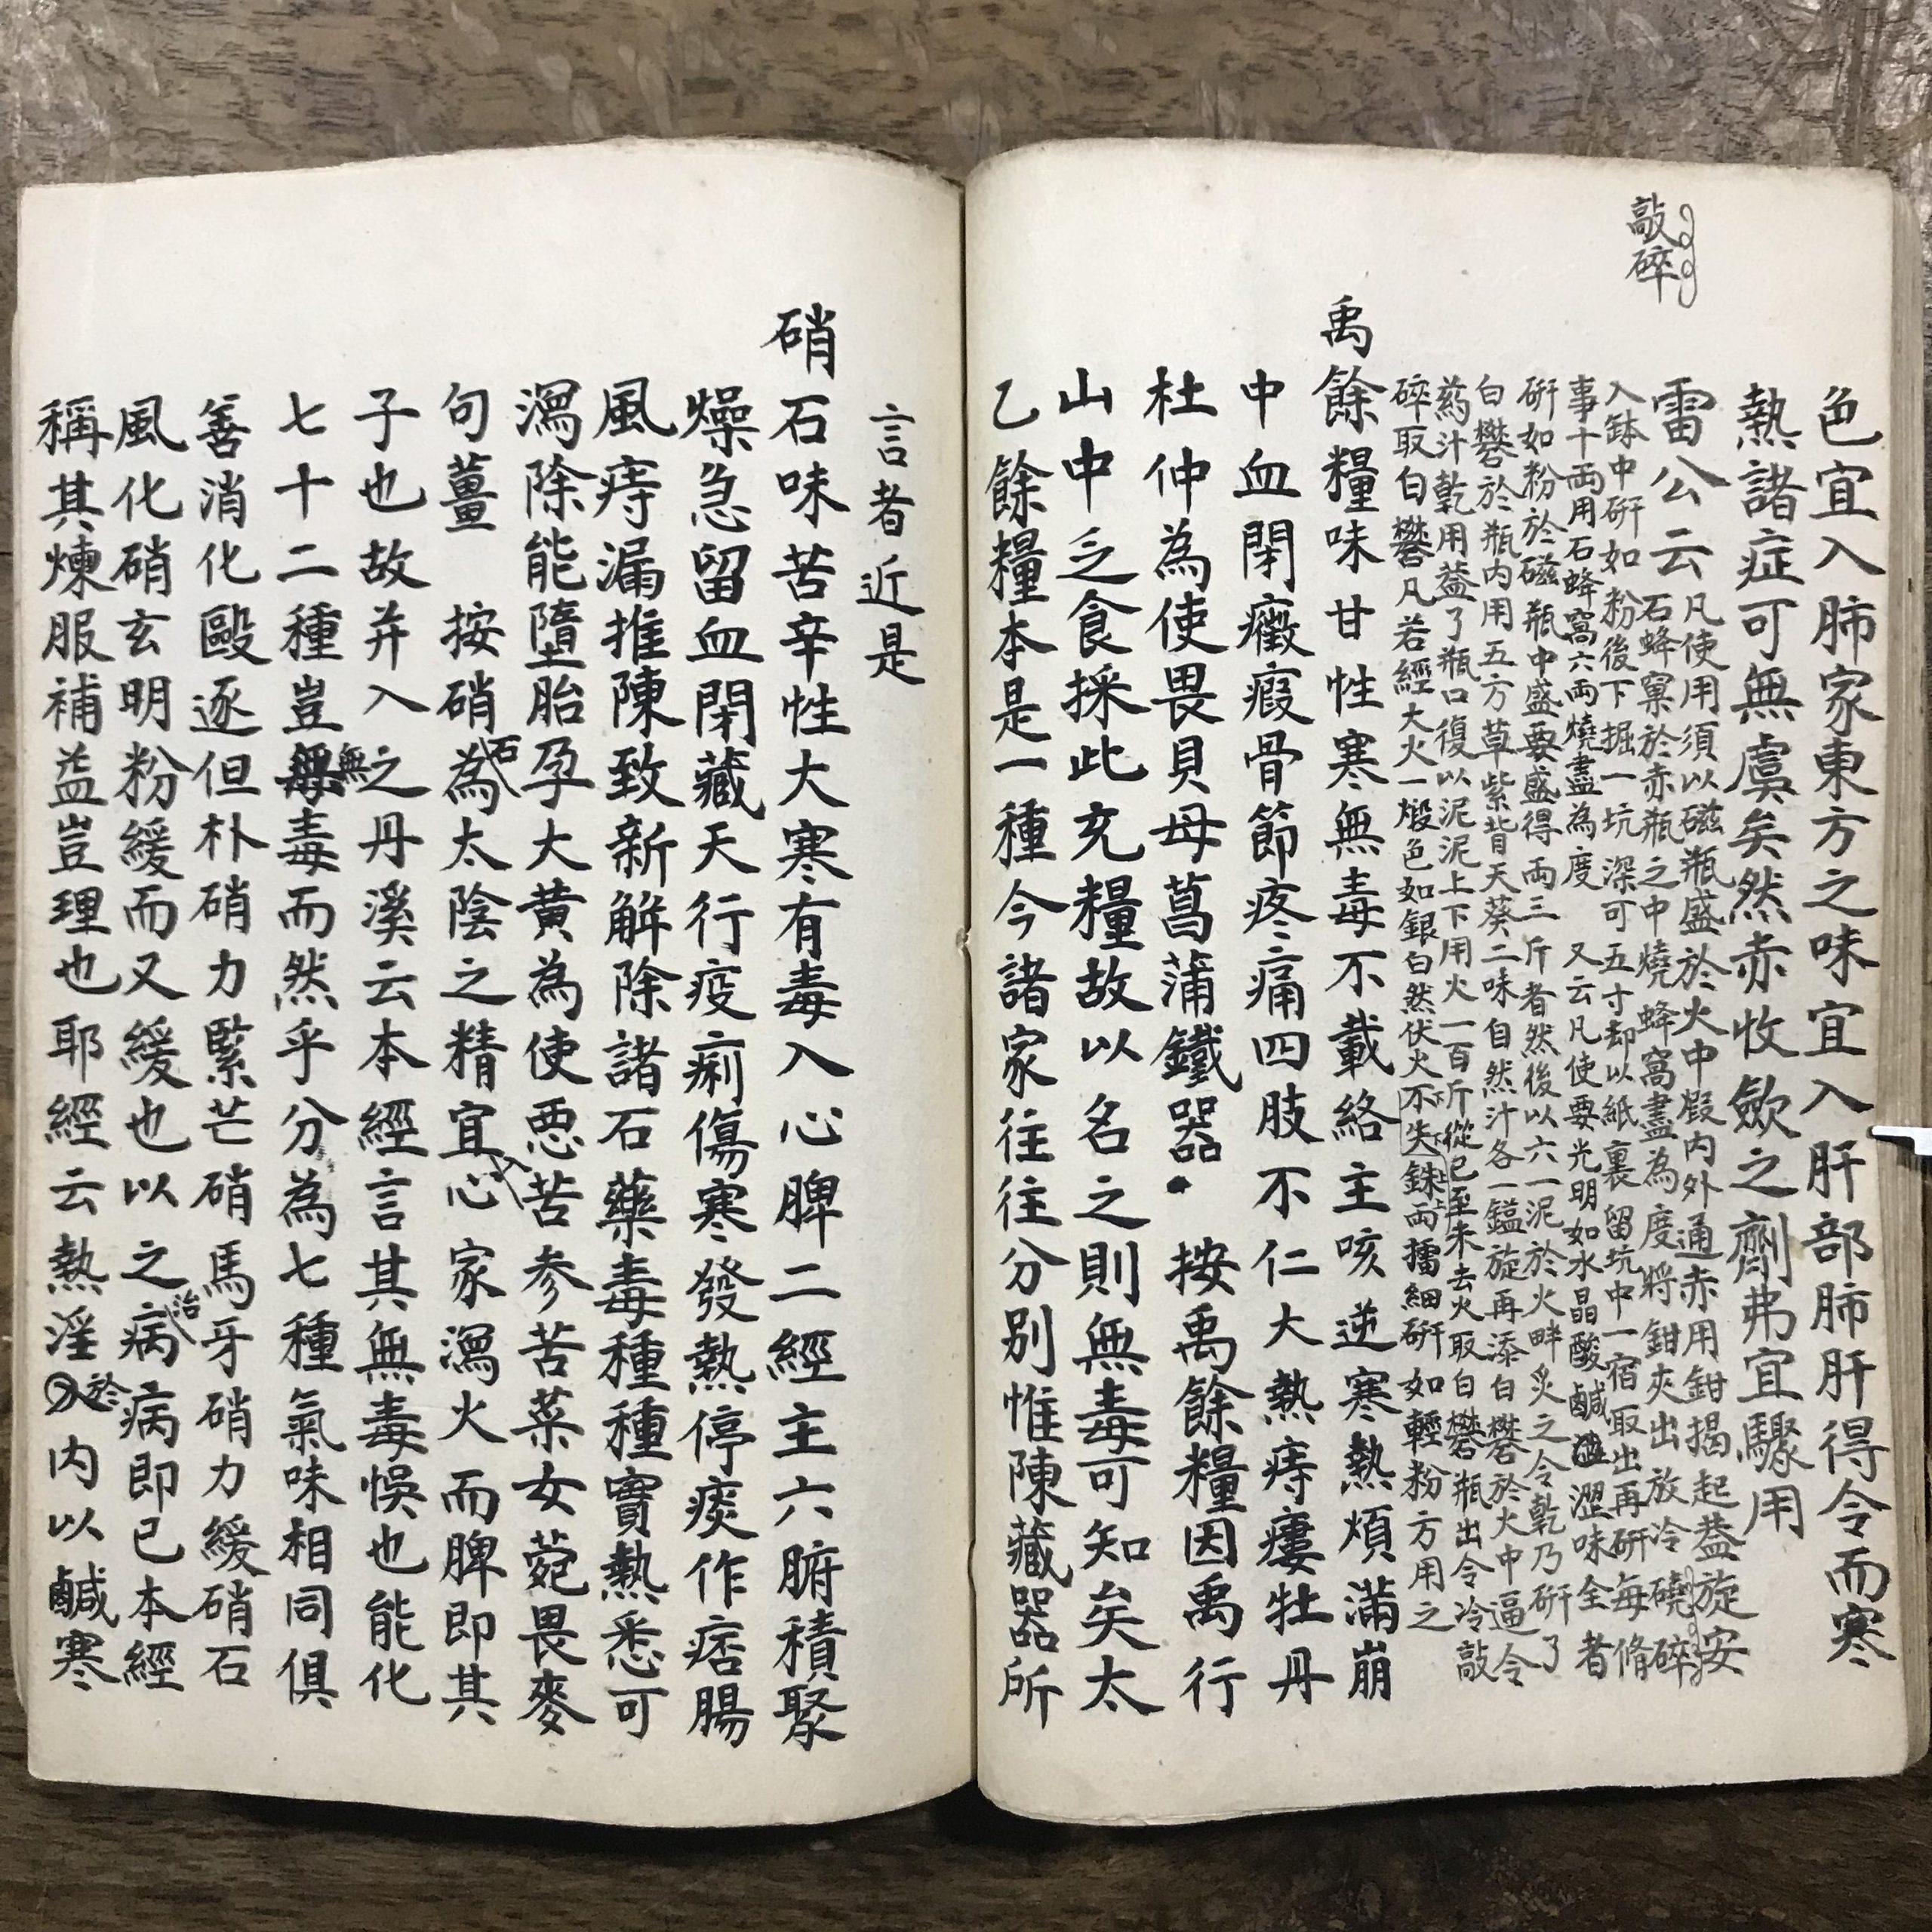 敲碎
色宜入肺家東方之味宜入肝部肺肝得令而寒
熱諸症可無虞矣然赤收歛之劑弗宜驟用
雷公云凡使用須以磁瓶盛於火中煆内外通赤用鉗揭起葢旋安
石蜂窠於赤瓶之中燒蜂窩盡為度將鉗夾出放冷磽碎
入缽中研如粉後下掘一坑深可五寸却以紙裹留坑中一宿取出再研每脩
事十両用石蜂窩六両燒盡為度　又云凡使要光明如水晶酸鹹澀味全者
研如粉於磁瓶中盛要盛得両三斤者然後以六一泥於火畔炙之令乾乃研了
白礬於瓶内用五方草紫背天葵二味自然汁各一鎰旋再添白礬於火中逼令
葯汁乾用葢了瓶口復以泥泥上下用火一百斤從巳至未去火取白礬瓶出令冷敲
碎取白礬凡若經大火一煅色如銀自然伏火不失銖両擂細研如輕粉方用之
禹餘糧味甘性寒無毒不載絡主咳逆寒熱煩滿崩
中血閉癥瘕骨節疼痛四肢不仁大熱痔瘻牡丹
杜仲為使畏貝母菖蒲鐵器　按禹餘糧因禹行
山中乏食採此充糧故以名之則無毒可知矣太
乙餘糧本是一種今諸家往往分別惟陳藏器所
言者近是
硝石味苦辛性大寒有毒入心脾二經主六腑積聚
燥急留血閉藏天行疫痢傷寒發熱停痰作痞腸
風痔漏推陳致新解除諸石藥毒種種實熱悉可
瀉除能墮胎孕大黄為使悪苦参苦菜女菀畏麥
句薑　按硝石為太陰之精宜入心家瀉火而脾即其
子也故并入之丹溪云本經言其無毒悞也能化
七十二種豈無毒而然乎分為七種氣味相同俱
善消化毆逐但朴硝力緊芒硝馬牙硝力緩硝石
風化硝玄明粉緩而又緩也以之治病病即已本經
稱其煉服補益豈理也耶經云熱淫於内以鹹寒